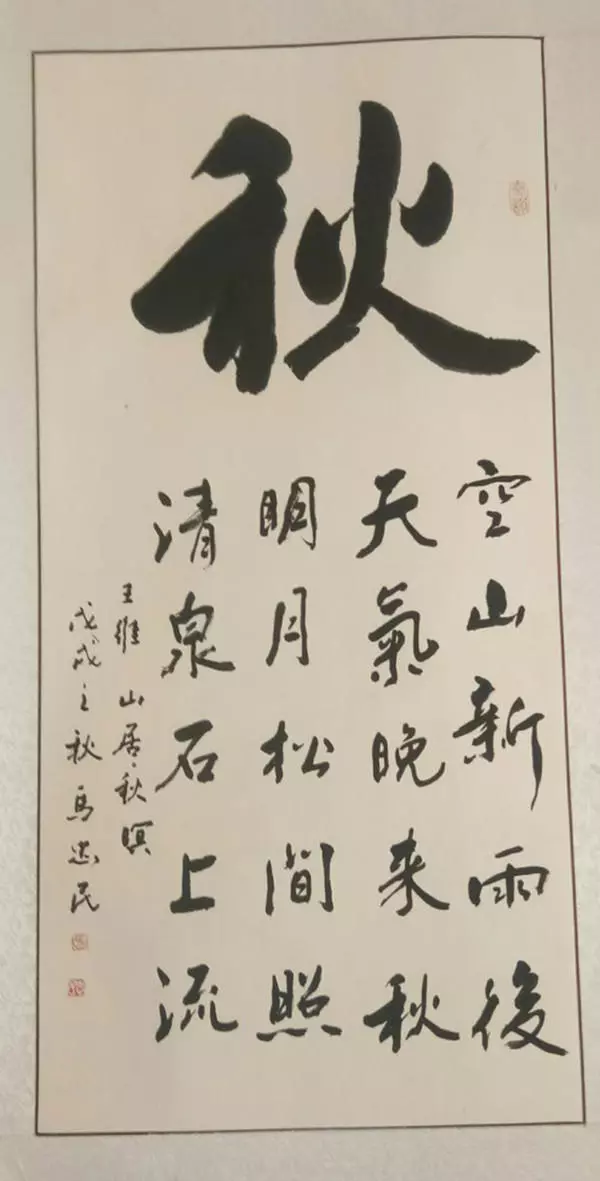 秋
空山新雨後
天氣晚来秋
明月松間照
清泉石上流
王維 山居秋暝
戊戌之秋 馬忠民